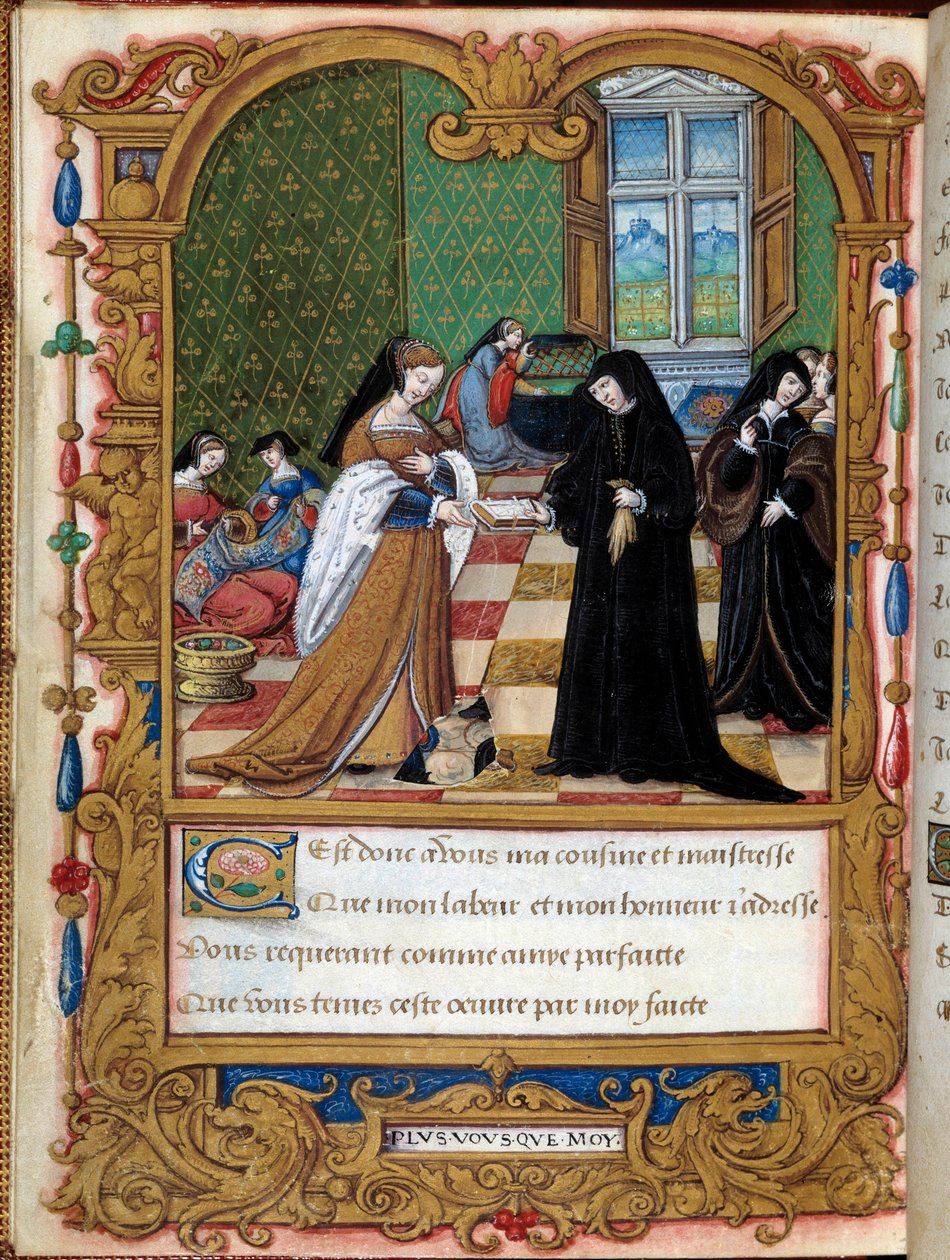 CEst donc a vous ma cousine et maistresse
Que mon labeur et mon honneur i'adresse.
Vous requerant comme amye parfaicte
Que vous tenez ceste oeuvre par moy faicte
PLVS·VOVS·QVE·MOY.